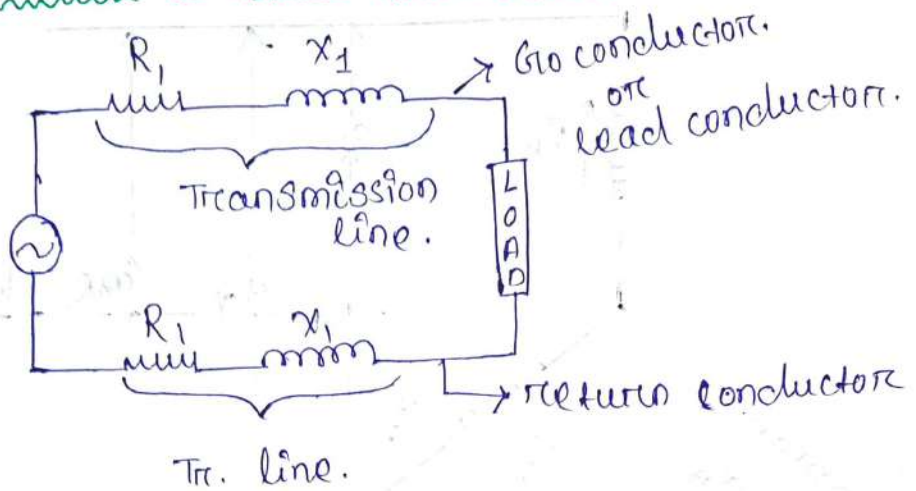 R₁ X₁
Go conductor.
or
lead conductor.
Transmission
line.
LOAD
R₁ X₁
return conductor
Tr. line.